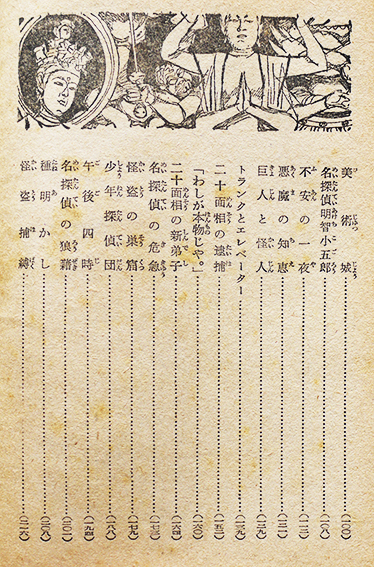 美術城……(一〇〇)
名探偵明智小五郎……(一〇八)
不安の一夜……
悪魔の知恵……
巨人と怪人……(一二九)
トランクとエレベーター……(一三九)
二十面相の逮捕……
「わしが本物じゃ。」……(一六〇)
二十面相の新弟子……(一六四)
名探偵の危急……
怪盗の巣窟……(一七九)
少年探偵団……(一八八)
午後四時……(一九四)
名探偵の狼藉……(二〇一)
種明かし……(二〇八)
怪盗捕縛……(二一六)